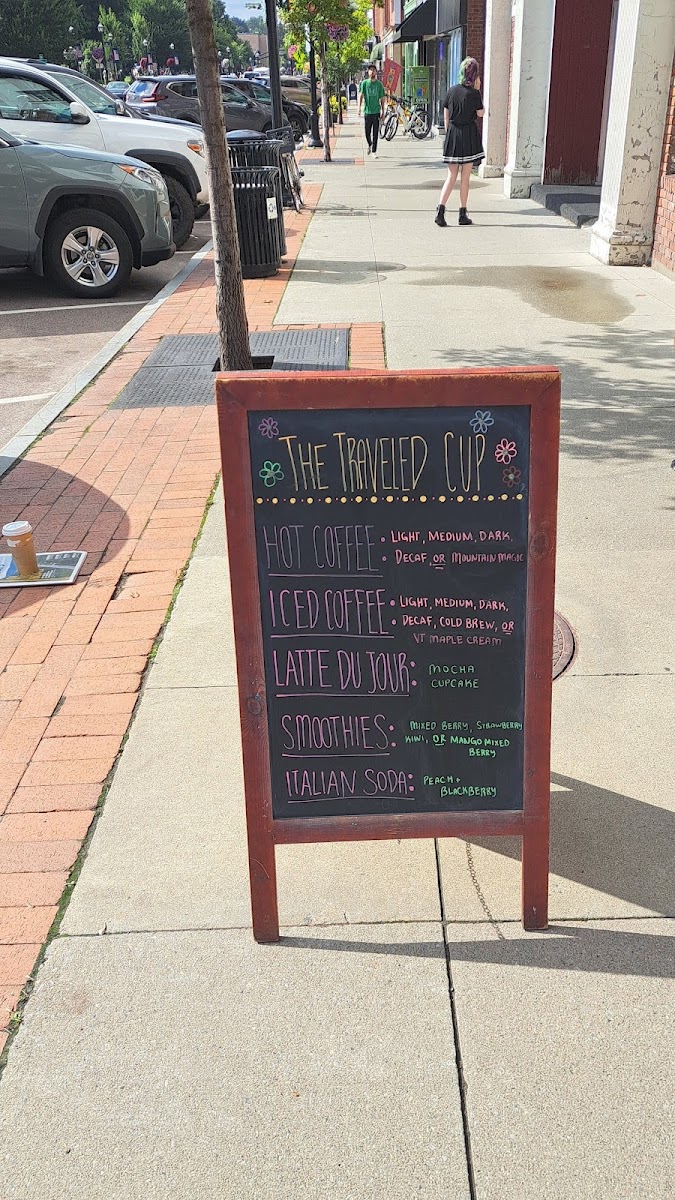 THE TRAVELED CUP
HOT COFFEE: LIGHT, MEDIUM, DARK,
DECAF, OR MOUNTAIN MAGIC
ICED COFFEE: LIGHT, MEDIUM, DARK,
DECAF, COLD BREW, OR
VT MAPLE CREAM
LATTE DU JOUR: MOCHA
CUPCAKE
SMOOTHIES: MIXED BERRY, STRAWBERRY
KIWI, OR MANGO MIXED
BERRY
ITALIAN SODA: PEACH +
BLACKBERRY